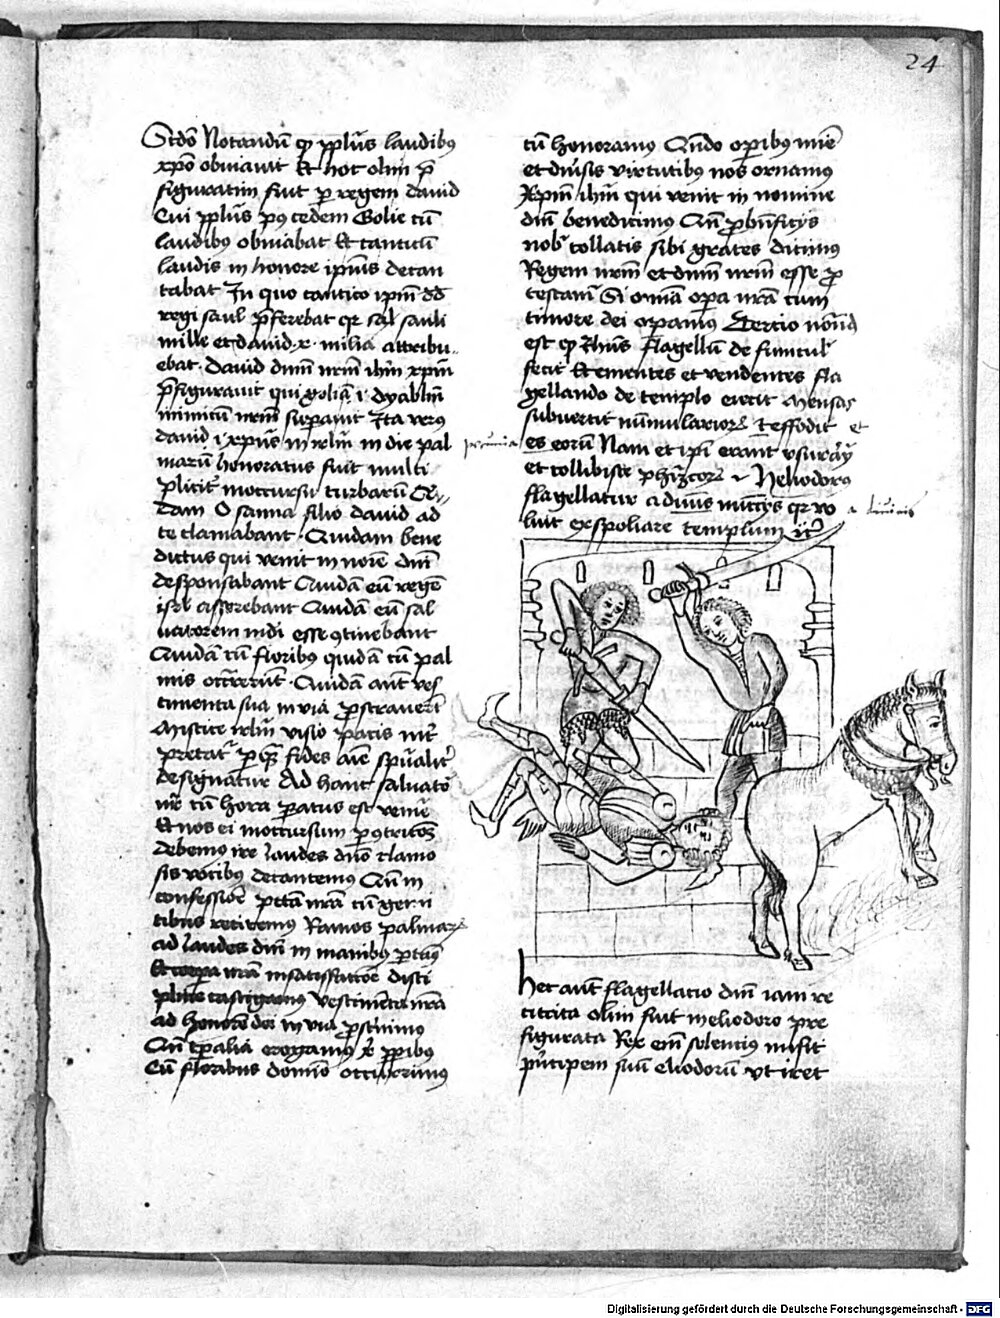 24
Scdo Notandū ꝙ pplūs laudibus
xpo obviavit Et hoc olim p̄
figuratum fuit per regem david
Cui pplūs pus cedem Golie cū
laudibus obviabat Et canticū
laudis in honore ipius decan
tabat In quo cantico ipm̄ dd
regi saul p̄ferebat qr sal sauli
mille et david .x. milia attribu
ebat. David dnm̄ nrm̄ ihm̄ xpm̄
p̄figuravit qui goliā i. dyablm̄
inimicū nrm̄ superavit Ita verus
david i. xpus in irlm̄ in die pal
marū honoratus fuit multi
plicitr̄ in occursu turbarū Qi
dam Osanna filio david ad
te clamabant. Quidam bene
dictus qui venit in noīe dnī
desponsabant Quidā eū regē
isrl asserebant Quidā eū sal
vatorem mdi esse ꝯtinebant
Quidā cū floribus quidā cū pal
mis occr̄rerūt. Quidā aūt ves
timenta sua in via prostraverūt
Mistice irlm̄ visio pacis intr̄
pretatr̄ p quā fides aīe spūalitr̄
designatur Ad hanc salvato
nr̄ cū hora paratus est venire
Et nos ei in occursum p ꝯtritōȝ
debemus ire Laudes dno clamo
sis vocibus decantemus Cū in
confessiōe pctā nrā cū gemi
tibus recitemus Ramos palmarꝝ
ad Laudes dnī in manibus ptāus
Et corpa nrā in satisfactiōe disci
pline castigamus Vestimenta nrā
ad honorē dei in via prosternimo
Cū tpalia erogamus xp̄ ppibus
Cū floribus domino occurrimus
tū honoramus Qn̄do opibus mīe
et diūsis virtutibus nos ornamus
Xpm̄ ihm̄ qui venit in nomine
dnī benedicimus Cū p bn̄ficiis
nob collatis sibi grates dicimus
Regem nrm̄ et dnm̄ nrm̄ esse p
testamr̄ Si omā opa nrā cum
timore dei opamus Tertio notād
est ꝙ Ihūs flagellū de funicul
fecit Et ementes et vendentes fla
gellando de templo eiecit Mensas
subvertit nūmulariorꝝ t effodit et
pecunia
es eorū Nam et ipi erant usurarii
et collibiste phizeorꝝ Heliodorus
flagellatur a divis mictys qr vo
a divinis
luit exspoliare templum itr̄
Hec aūt flagellatio dnī iam re
cicita olim fuit in eliodoro pre
figurata Rex enī solentius misit
pn̄cipem suū eliodorū vt iret
Digitalisierung gefördert durch die Deutsche Forschungsgemeinschaft - DFG